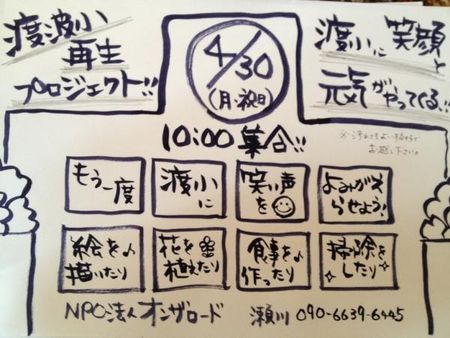 渡波小
再生
プロジェクト!!
4/30
(月・祝日)
渡小に 笑顔と
元気がやってくる!!
10:00 集合!!
もう一度
渡小に
笑い声
を
よみがえ
らせよう!
絵を♪
描いたり
花を
植えたり
食事を
作ったり
掃除を
したり
NPO法人オンザロード 瀬川 090-6639-6445